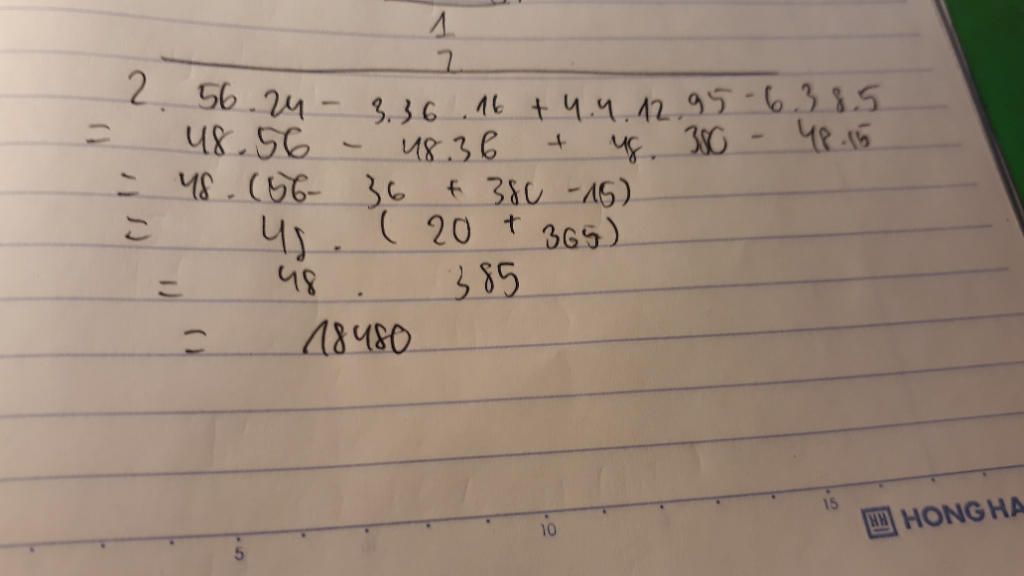 1
2
2. 56.24 - 3.36.16 + 4.4.12.95 - 6.3 8.5
= 48.56 - 48.36 + 48. 380 - 48.15
= 48.(56- 36 + 380 -15)
= 48. ( 20 + 365)
= 48 . 385
= 18480
5 10 15
HH HONG HA